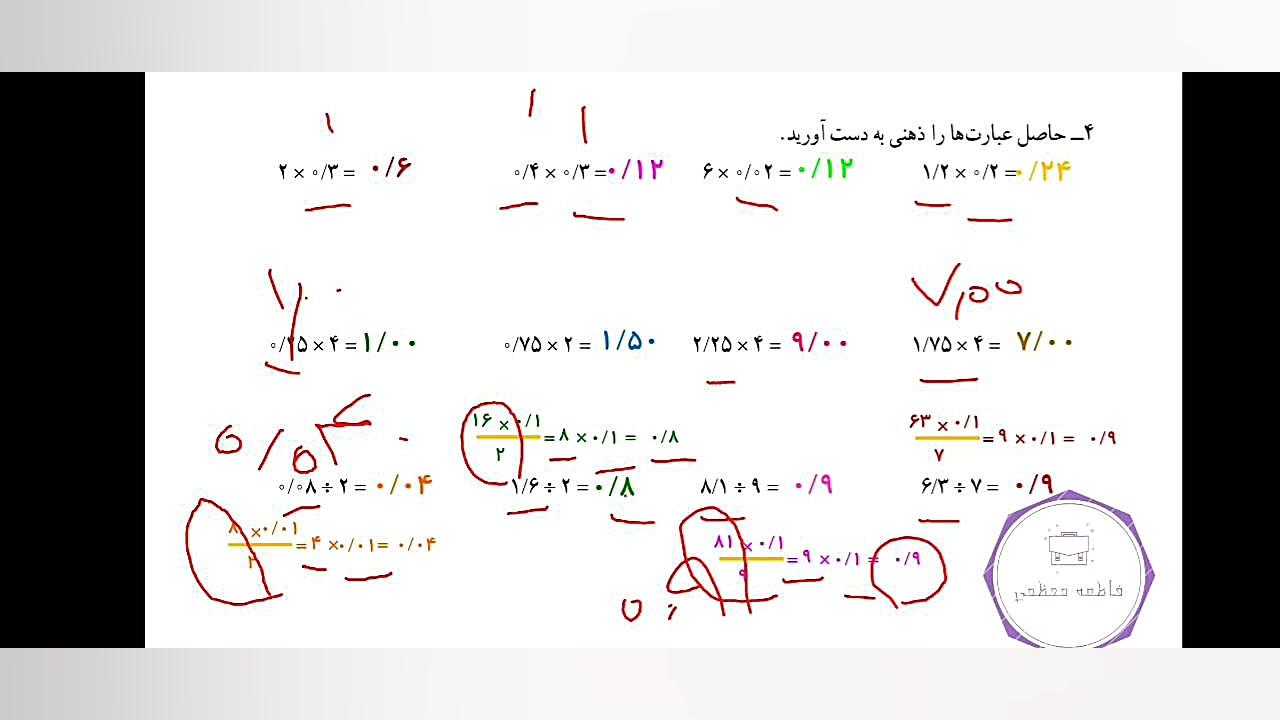 ۴ــ حاصل عبارت‌ها را ذهنی به دست آورید.
۲ × ۰/۳ = ۰/۶
۰/۴ × ۰/۳ = ۰/۱۲
۶ × ۰/۰۲ = ۰/۱۲
۱/۲ × ۰/۲ = ۰/۲۴
۷/۰۰
۰/۲۵ × ۴ = ۱/۰۰
۰/۷۵ × ۲ = ۱/۵۰
۲/۲۵ × ۴ = ۹/۰۰
۱/۷۵ × ۴ = ۷/۰۰
۱۶ × ۰/۱
۲
= ۸ × ۰/۱ = ۰/۸
۶۳ × ۰/۱
۷
= ۹ × ۰/۱ = ۰/۹
۰/۰۸ ÷ ۲ = ۰/۰۴
۱/۶ ÷ ۲ = ۰/۸
۸/۱ ÷ ۹ = ۰/۹
۶/۳ ÷ ۷ = ۰/۹
۸ × ۰/۰۱
۲
= ۴ × ۰/۰۱ = ۰/۰۴
۸۱ × ۰/۱
۹
= ۹ × ۰/۱ = ۰/۹